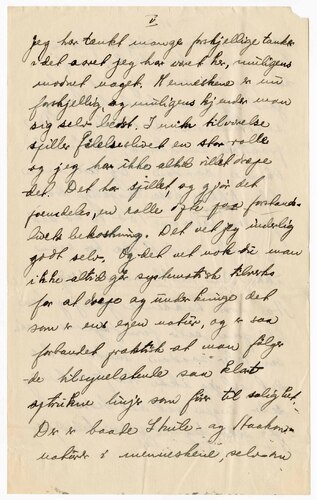 V
Jeg har tænkt mange forskjellige tanker
i det aaret jeg har været her, muligens
modnet noget. Menneskene er nu
forskjellig, og muligens kjender man
sig selv bedst. I min tilværelse
spiller følelseslivet en stor rolle
og jeg har ikke altid villet dræpe
det. Det har spillet, og gjør det
fremdeles, en rolle ofte paa forstands-
livets bekostning. Det vet jeg inderlig
godt selv. Og det vet nok du man
ikke altid gaar systematisk tilverks
for at dræpe og underkninge det
som er ens egen natur, og er saa
forbandet praktisk at man følger
de tilsynelatende saa klart
optrukne linjer som fører til salighet.
Der er baade Skule- og Haakon-
naturer i menneskene, selv om